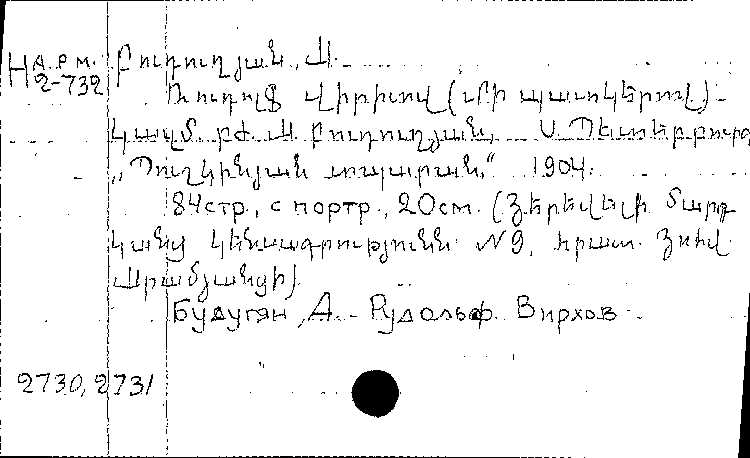 Н А.Р.М. 2-732
Բուդուղյան, Ա.
Ռուդոլֆ Վիրխով (մի պատկերով).
Կազմ. բժ. Ա. Բուդուղյան, Ս. Պետերբուրգ
„Պուշկինյան տպարան,“ 1904.
84стр., с портр., 20см. (Երևելի մարդ
կանց կենսագրությունն N 9, հրատ. Հովվ.
Արամյանցի)
Будугян, А. Рудольф Вирхов
2730, 2731